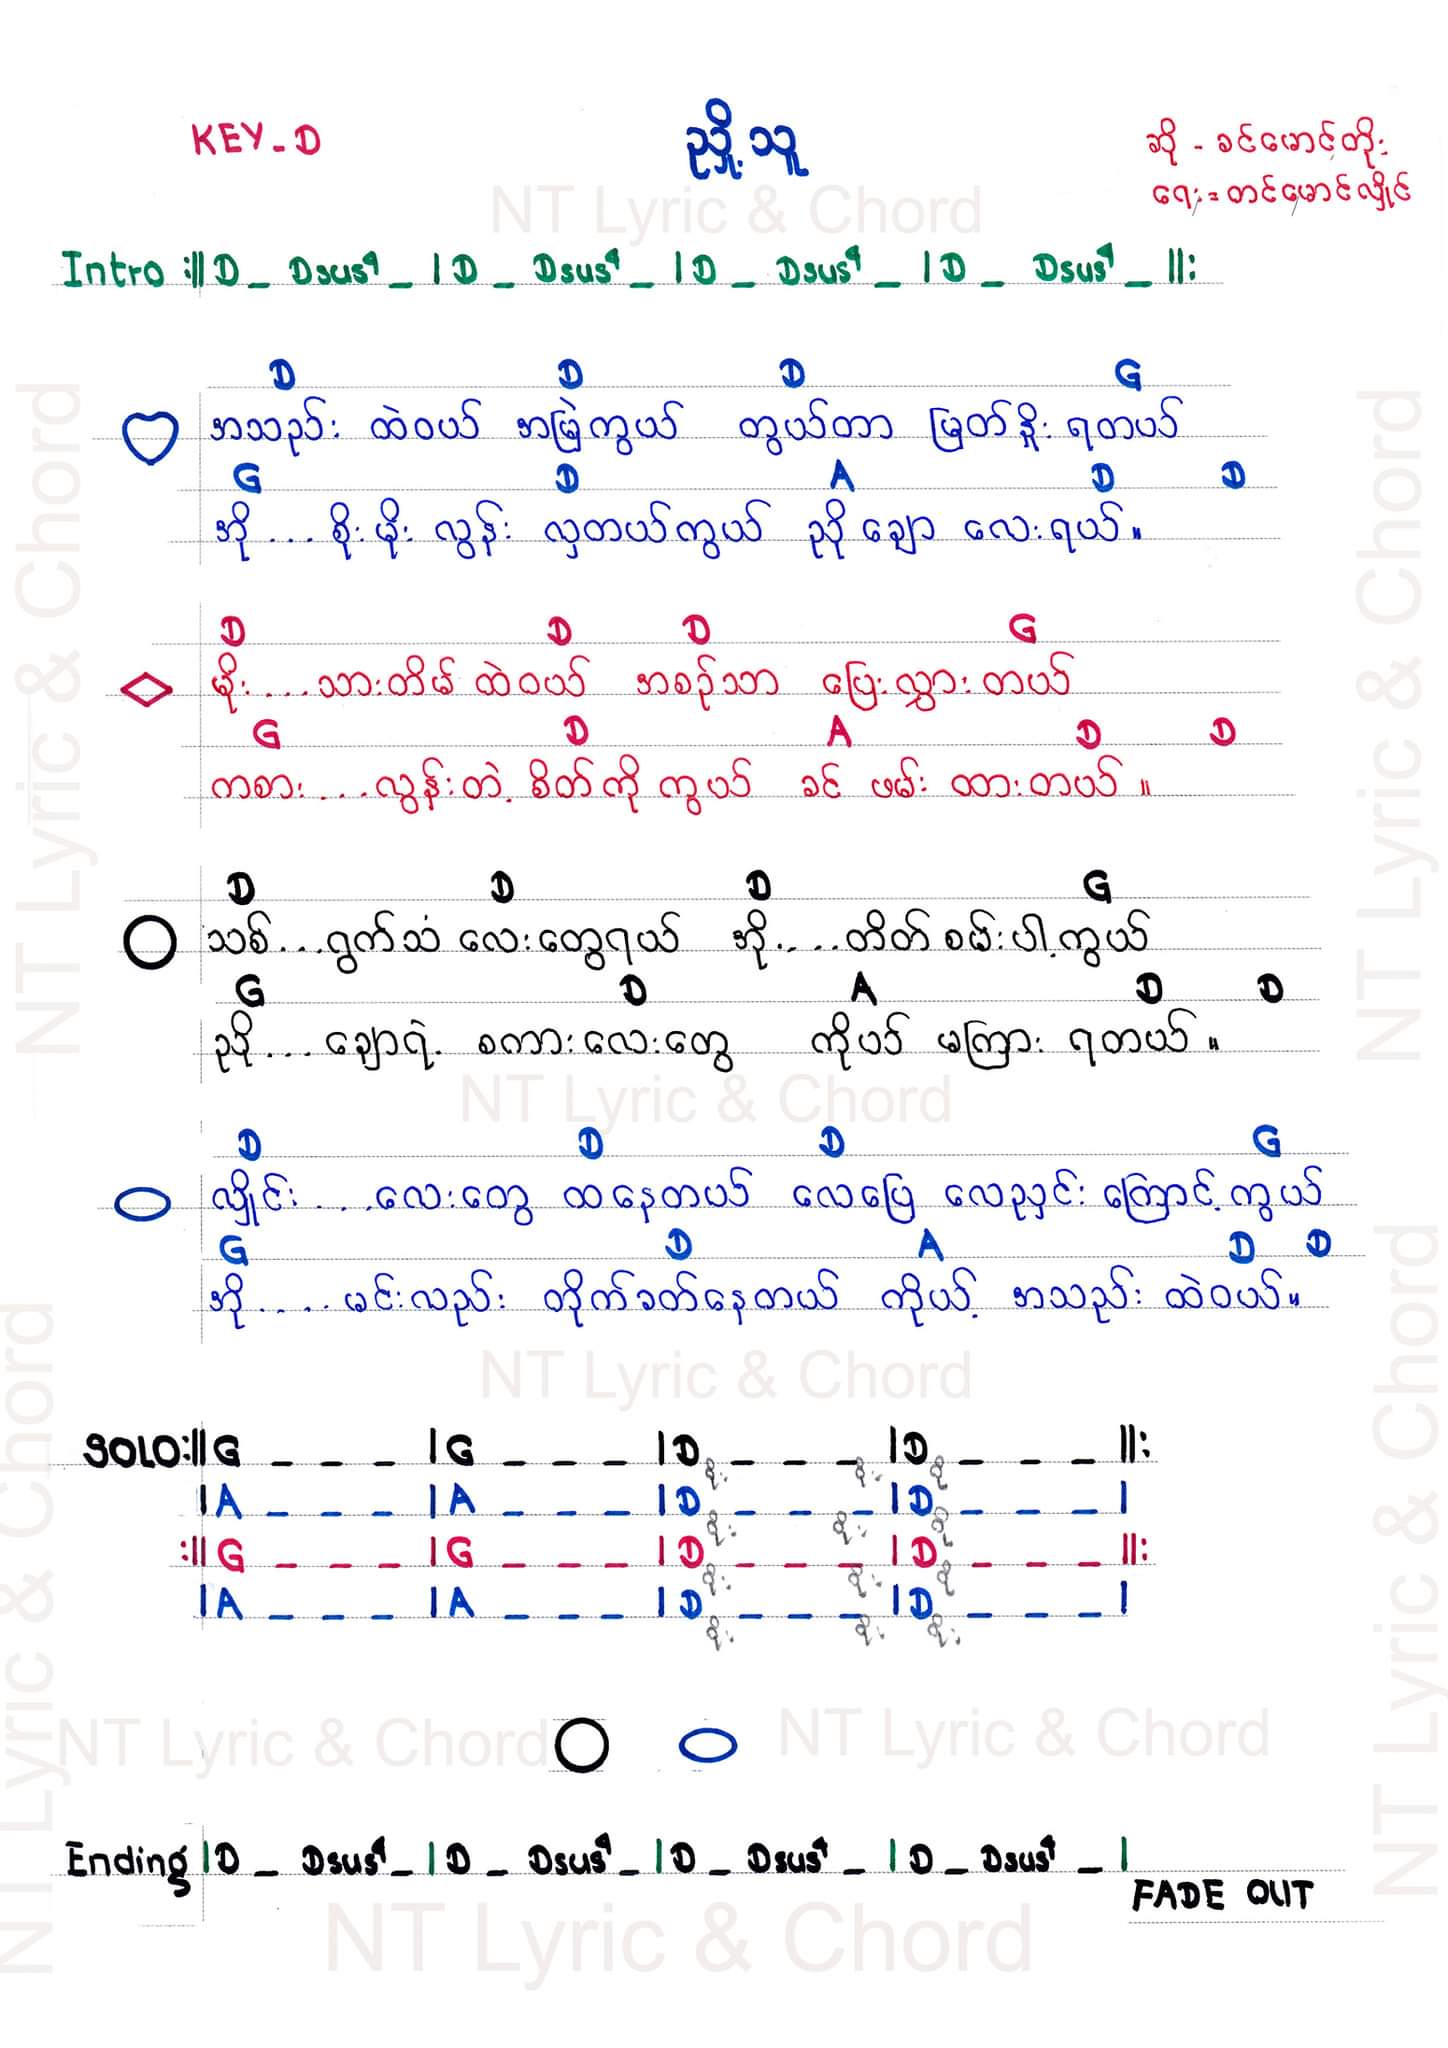 KEY-D
ညှို့သူ
ဆို - ခင်မောင်တိုး
ရေး = တင်မောင်လှိုင်
NT Lyric & Chord
Intro :||D _ Dsus4 _ |D _ Dsus4 _ |D _ Dsus4 _ |D _ Dsus4 _ ||:
D D D G
အသည်း ထဲဝယ် အမြဲကွယ် တွယ်တာ မြတ်နိုး ရတယ်
G D A D D
အို .... စိုးမိုး လွန်း လှတယ်ကွယ် ညိုချော လေးရယ်။
D D D G
မိုး .... သားတိမ် ထဲဝယ် အစဉ်သာ ပြေးလွှားတယ်
G D A D D
ကစား .... လွန်းတဲ့ စိတ်ကို ကွယ် ခင် ဖမ်း ထားတယ်။
D D D G
သစ် ... ရွက်သံ လေးတွေရယ် အို .... တိတ်စမ်းပါ့ကွယ်
G D A D D
ညို .... ချောရဲ့ စကားလေးတွေ ကိုယ် မကြား ရတယ်။
NT Lyric & Chord
D D D G
လှိုင်း ....လေးတွေ ထနေတယ် လေပြေ လေညှင်း ကြောင့်ကွယ်
G D A D D
အို ..... မင်းလည်း တိုက်ခတ်နေတယ် ကိုယ့် အသည်း ထဲဝယ်။
NT Lyric & Chord
SOLO:||G _ _ _ |G _ _ _ |D _ _ _ |D _ _ _ ||:
|A _ _ _ |A _ _ _ |D _ _ _ |D _ _ _ |
:||G _ _ _ |G _ _ _ |D _ _ _ |D _ _ _ ||:
|A _ _ _ |A _ _ _ |D _ _ _ |D _ _ _ |
NT Lyric & Chord NT Lyric & Chord
Ending |D _ Dsus4 _ |D _ Dsus4 _ |D _ Dsus4 _ |D _ Dsus4 _ |
FADE OUT
NT Lyric & Chord
NT Lyric & Chord
NT Lyric & Chord
NT Lyric & Chord
NT Lyric & Chord